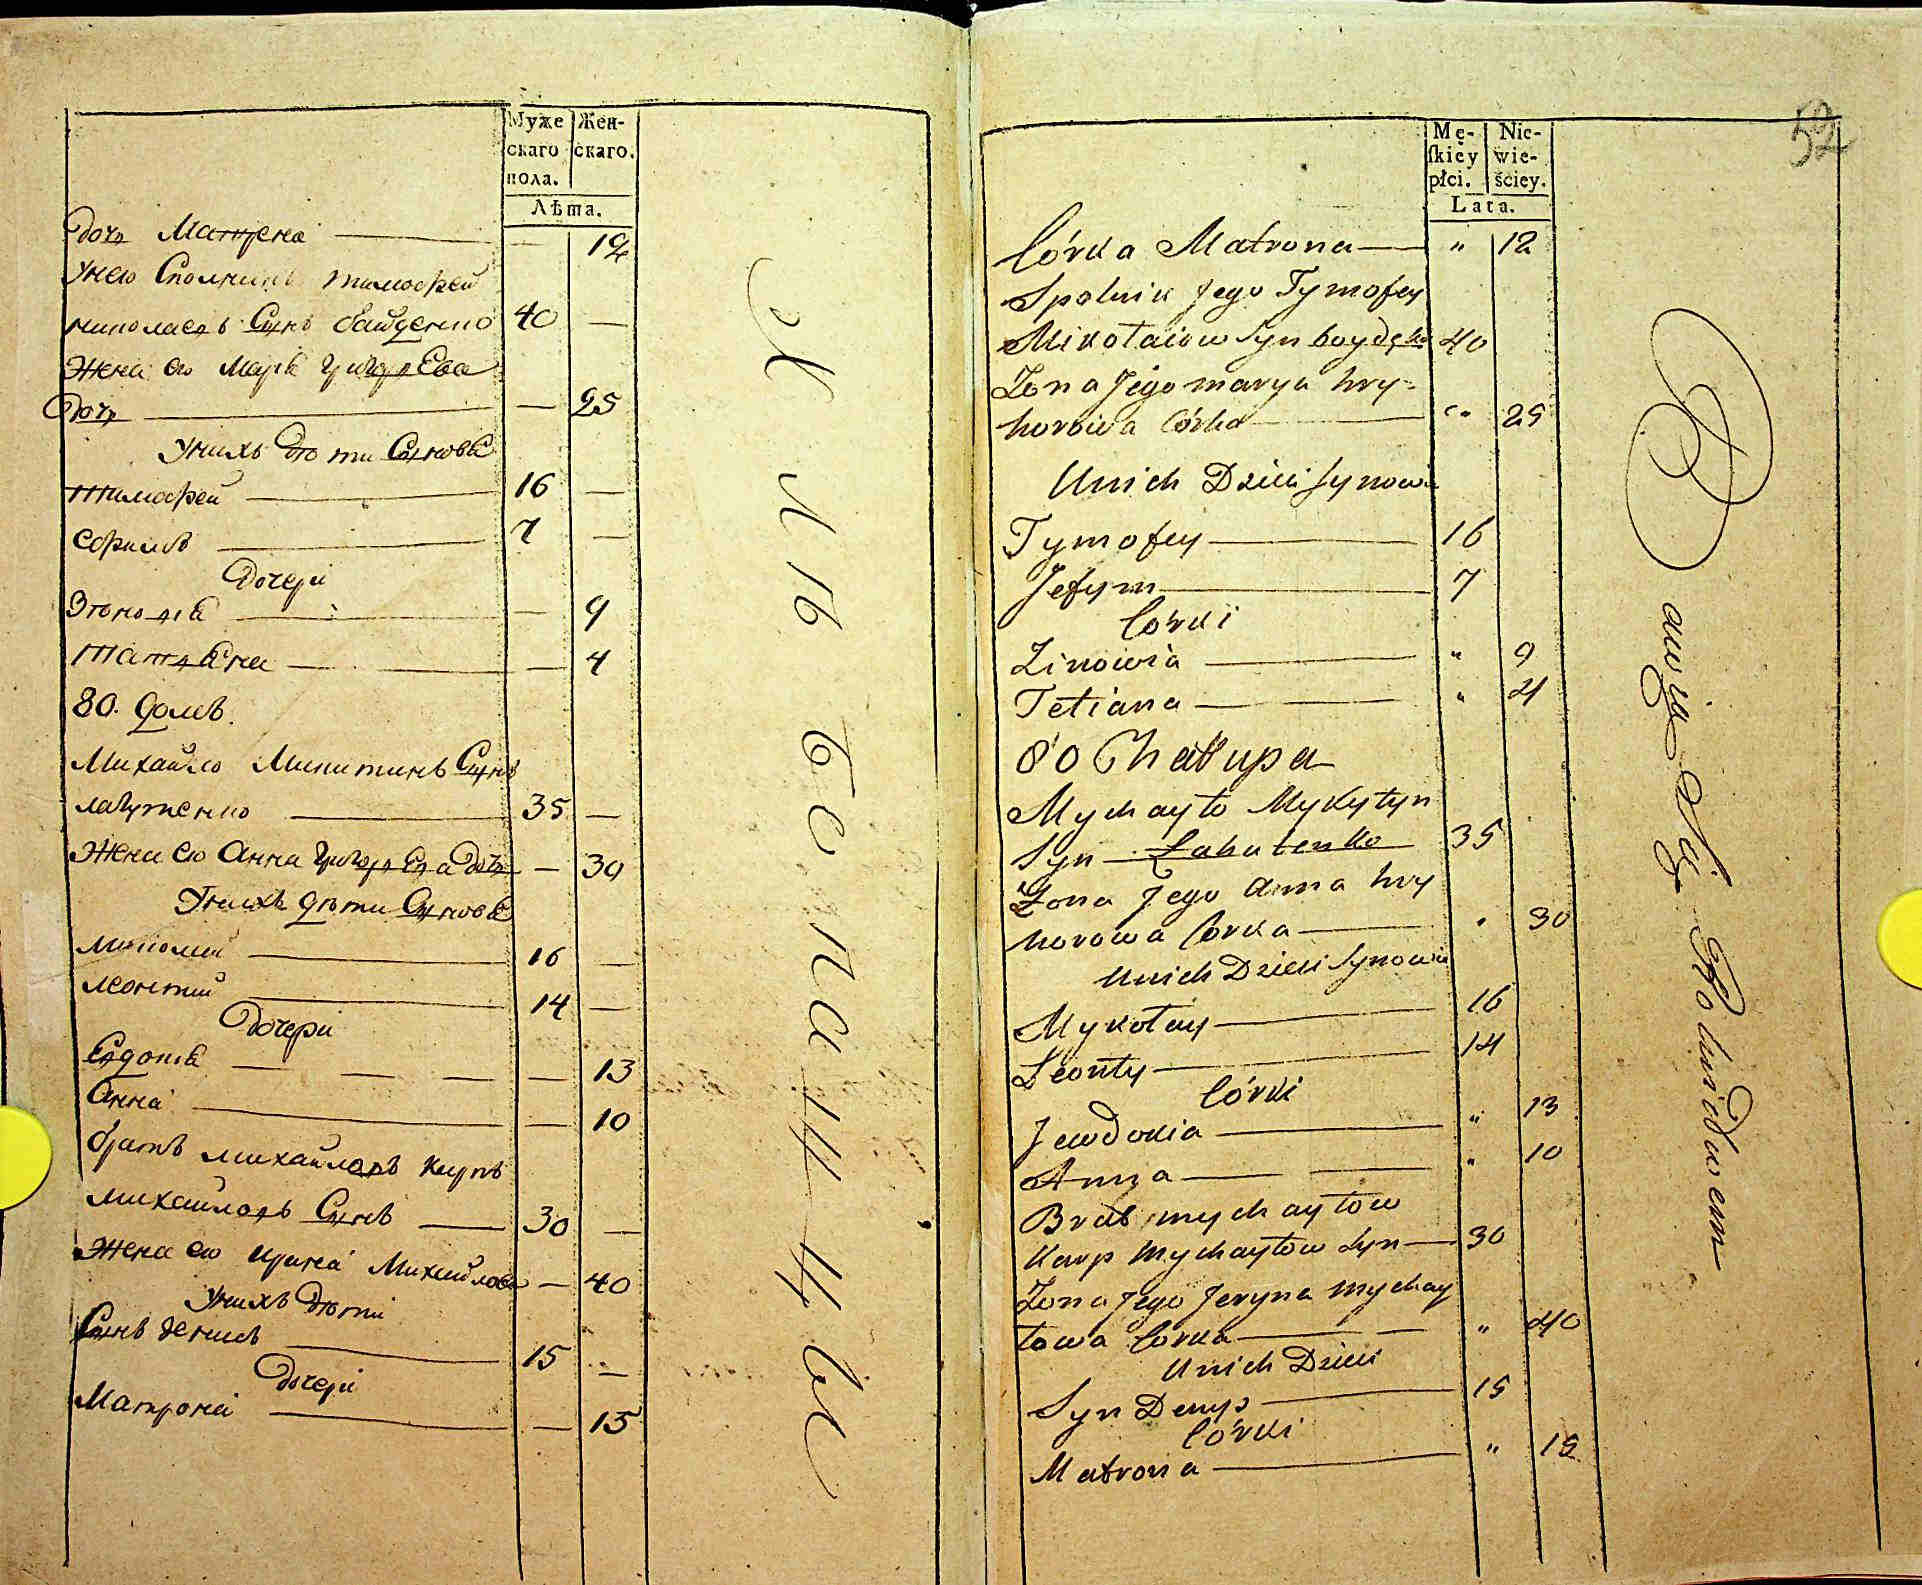 Муже Жен-
скаго скаго.
пола.
Лѣта.
Дочь Матрена — 12
Унего Сполникъ тимофей
николаевъ Сынъ байденко 40 —
Жена его Маря григорьева
Дочь — 25
Унихъ Дѣти Сынове
тимофей 16 —
Ефимъ 7 —
Дочери
Зѣновія — 9
татьяна — 4
80. Домъ.
Михайло Микитинъ Сынъ
лабутенко 35 —
Жена его Анна григорьева дочь — 30
Унихъ дѣти Сынове
миколай 16 —
леонтий 14 —
Дочери
Евдокія — 13
Анна — 10
братъ михайловъ карпъ
михайловъ Сынъ 30 —
Жена его ирина Михайлова — 40
Унихъ Дѣти
Сынъ денисъ 15 —
Дочери
Матрона — 15
52
Mę- Nie-
ſkiey wie-
płci. ściey.
Lata.
Córka Matrona — " 12
Spolnik Jego Tymofey
Mikołaiow Syn boydęko 40
Żona Jego marya hry-
horowa Córka — " 25
Unich Dzieci Synowie
Tymofey — 16
Jefym — 7
Córki
Zinowia — " 9
Tetiana — " 4
80 Chałupa
Mychayło Mykytyn
Syn Łabutenko 35
Żona Jego Anna hry
horowa Corka — " 30
Unich Dzieci Synowie
Mykołay — 16
Leonty — 14
Córki
Jewdokia — " 13
Anna — " 10
Brat mychayłow
Karp Mychayłow Syn — 30
Żona Jego Jeryna mychay
łowa Corka — " 40
Unich Dzieci
Syn Denys — 15
Córki
Matrona — " 15